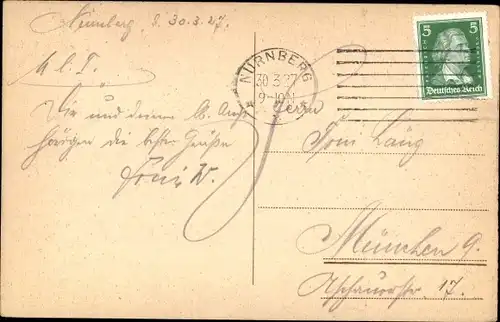 Nürnberg, d. 30.3.27.
M. l. T.
Dir und deinen lb. Ange-
hörigen die besten Grüße
W.
NÜRNBERG
30.3.27
9-10 N
5 5
Deutsches Reich
Herrn
Toni Lang
München 9.
Aschauerstr. 17.